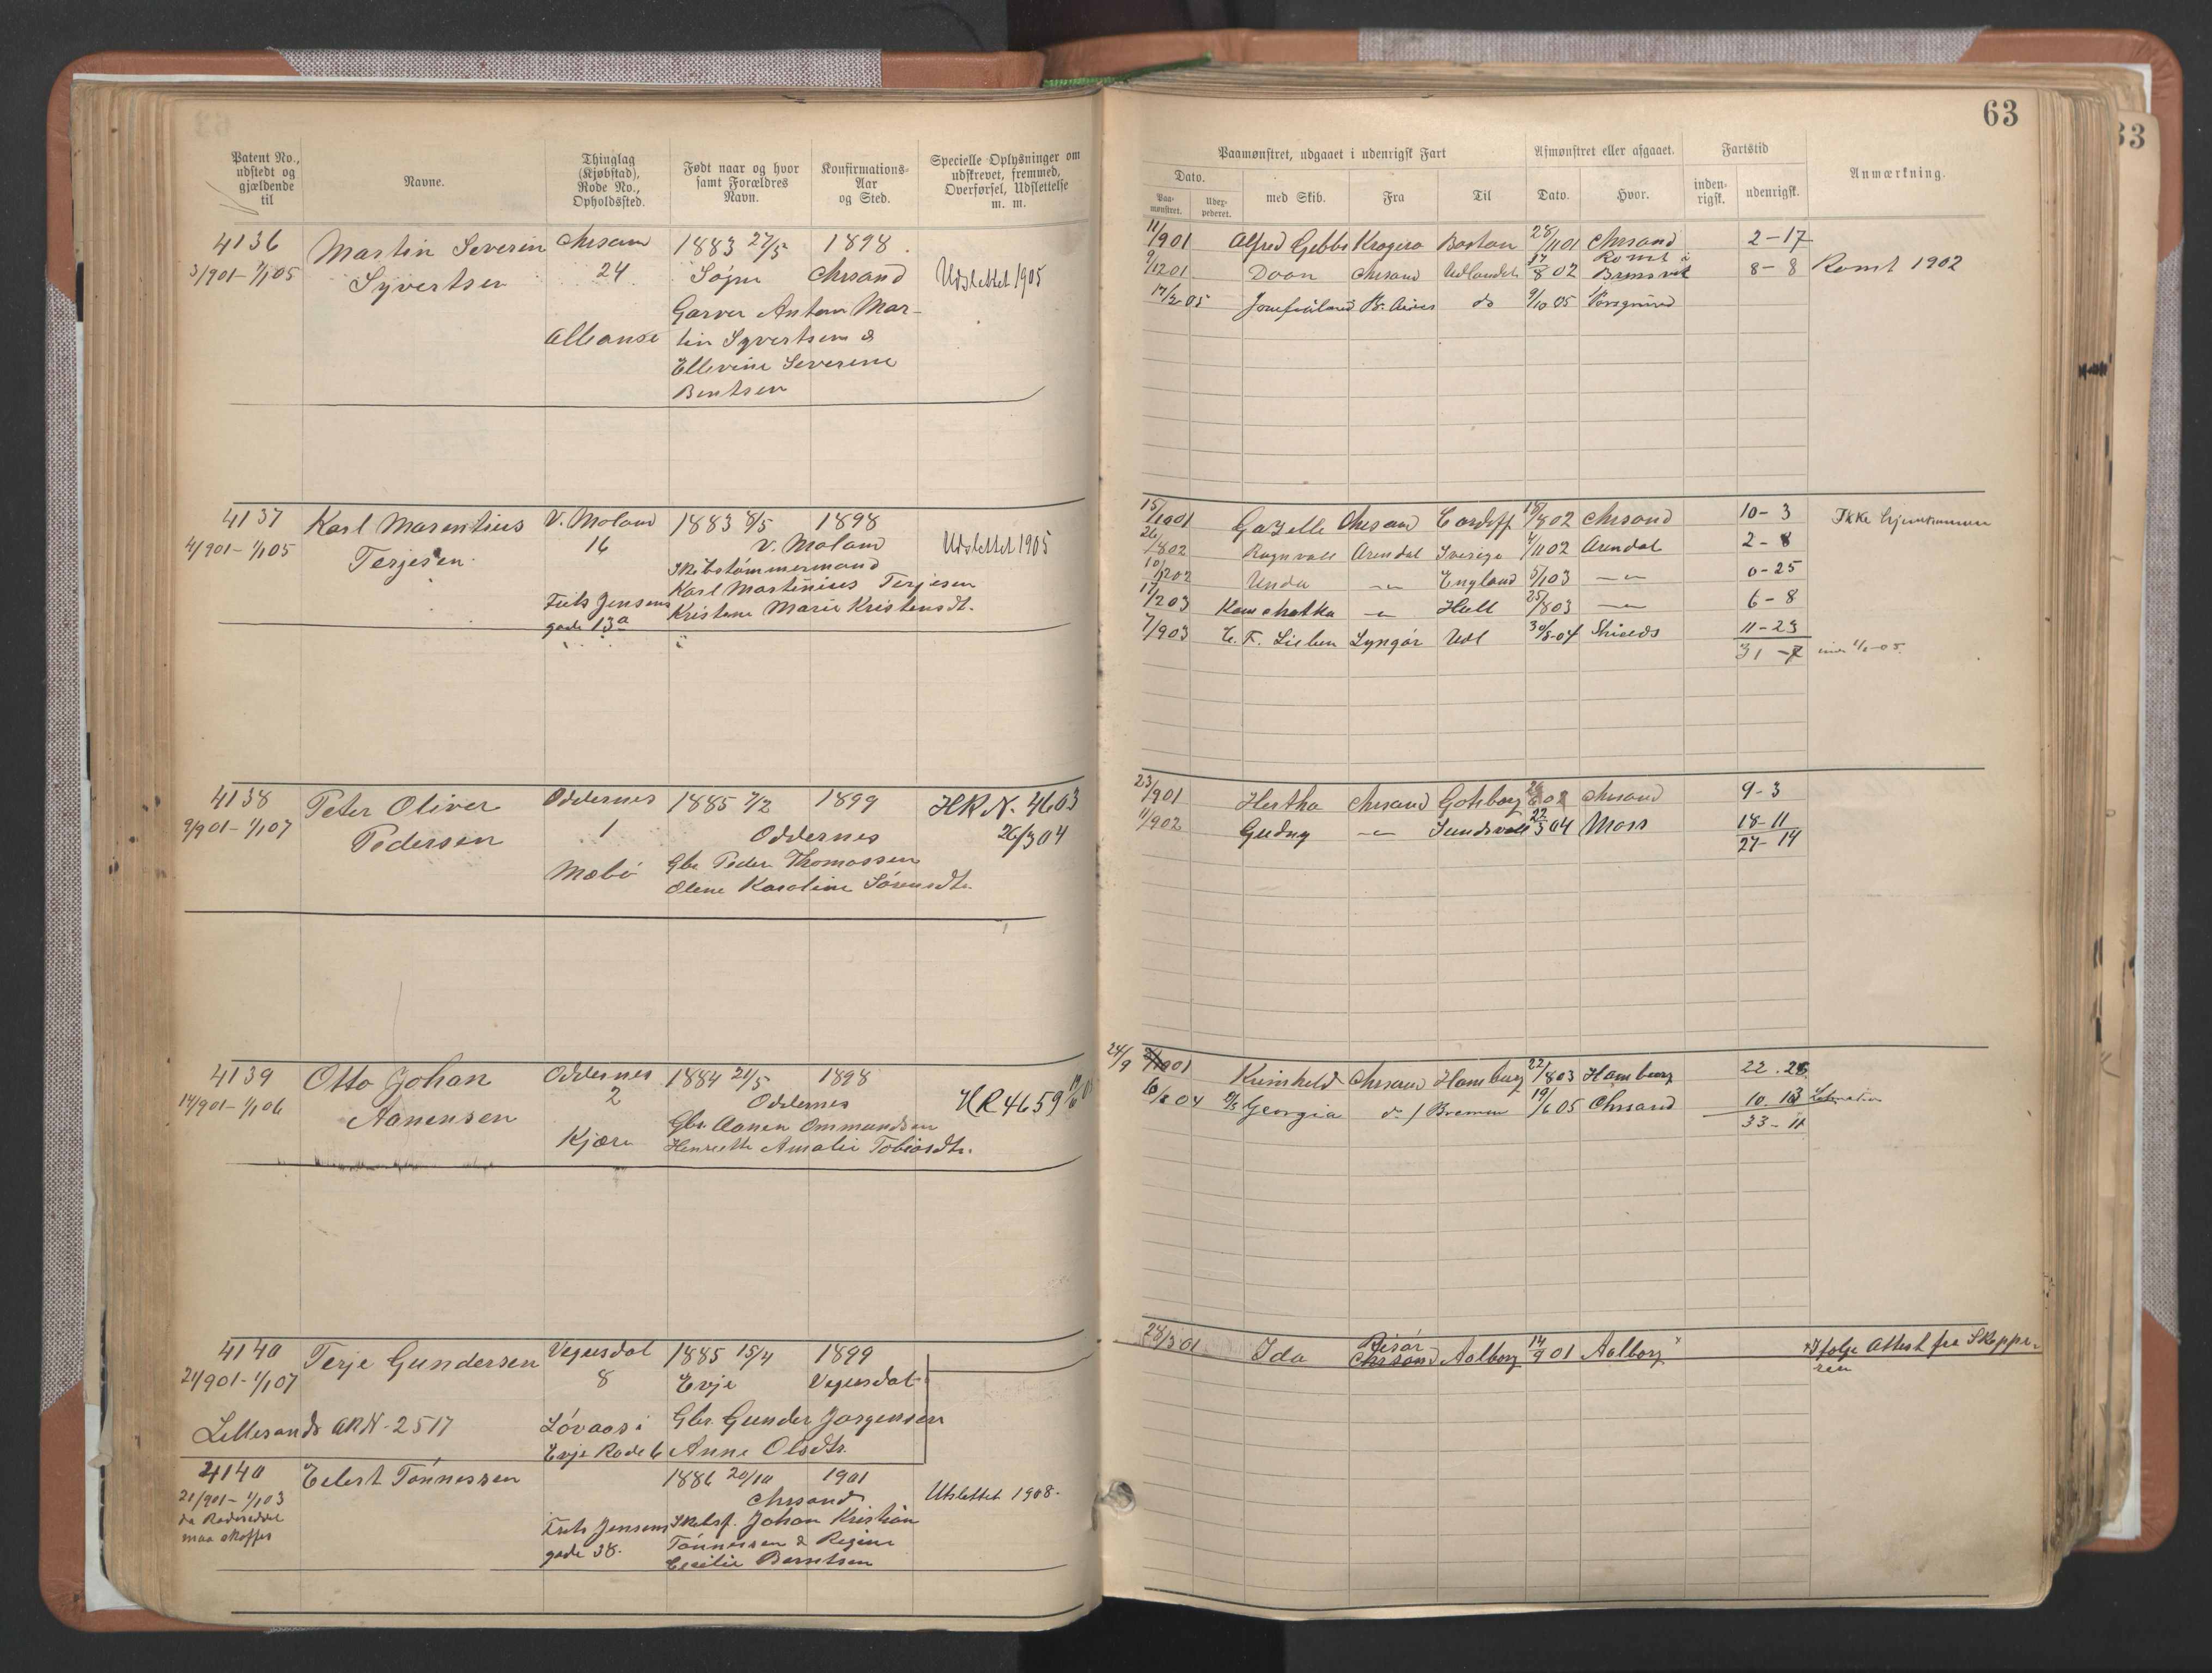 63
Patent No., udstedt og gjældende til
Navne.
Thinglag (Kjøbstad), Rode No., Opholdssted.
Født naar og hvor samt Forældres Navn.
Konfirmations-Aar og Sted.
Specielle Oplysninger om udskrevet, fremmed, Overførsel, Udslettelse m. m.
Paamønstret, udgaaet i udenrigsk Fart
Afmønstret eller afgaaet.
Fartstid
Anmærkning.
Dato.
Paa-mønstret.
Udex-pederet.
med Skib.
Fra
Til
Dato.
Hvor.
inden-rigsk.
udenrigsk.
4136 Martin Severin Chrsand 1883 27/5 1898
3/901 - 1/105 Syvertsen 24 Søgne Chrsand Udslettet 1905
Garver Anton Mar-
Alleanse tin Syvertsen &
Ellevine Severine
Bentsen
11/901 Alfred Gebbs Kragerø Boston 28/1101 Chrsand 2-17
9/1201 Doon Chrsand Udlandet 17/802 Romt i Brunsvik 8-8 Romt 1902
17/2 05 B. Aires do 9/10 05 Porsgrund
4137 Karl Marentius V. Moland 1883 8/5 1898
4/901 - 1/105 Terjesen 16 V. Moland Udslettet 1905
Skibstømmermand
Karl Martinius Terjesen
Frits Jensens Kristane Marie Kristensdt.
gade 13a
15/1001 Gazelle Chrsand Cardiff 18/802 Chrsand 10-3 Ikke hjemkommen
26/802 Ragnvald Arendal Sverige 4/1102 Arendal 2-8
10/1202 Unda -"- England 5/103 -"- 0-25
17/203 Kamchatka -"- Hull 25/803 -"- 6-8
7/903 E. F. Lieben Lyngør Udl 30/8-04 Shields 11-23
31-7
4138 Peter Oliver Oddernes 1885 7/2 1899 HR N. 4603
9/901 - 1/107 Pedersen 1 Oddernes 26/3 04
Mæbø Gbr. Peder Thomassen
Oline Karoline Sørensdtr.
23/901 Hertha Chrsand Gotsborg Chrsand 9-3
11/902 Gudny -"- Sundsvall 22/304 Moss 18-11
27-14
4139 Otto Johan Oddernes 1884 21/5 1898
14/901 - 1/106 Aanensen 2 Oddernes HR 4659
Gbr. Aanen Ommundsen
Kjære Henriette Amalie Tobiasdtr.
24/9 01 Krimhild Chrsand Hamburg 22/803 Hamburg
10/8 04 D/S Georgia do / Bremen 19/6 05 Chrsand 10.13
33-11
4140 Terje Gundersen Vegusdal 1885 15/4 1899
24/901 - 1/107 8 Evje Vegusdal
Løvaas i Gbr. Gunder Jørgensen
Lillesands AR N. 2517
Evje Rode 6 Anne Olsdtr.
28/3 01 Ida Risør Chrsand Aalborg 14/9 01 Aalborg Ifølge Attest fra Skippe-
ren
4140 Eilert Tønnessen 1886 20/10 1901
21/901 - 1/103 Chrsand Utslettet 1908.
da Rodeseddel
maa skaffes
Frits Jensens Skibsf. Johan Kristian
gade 38. Tønnessen & Regine
Cecilie Berntsen